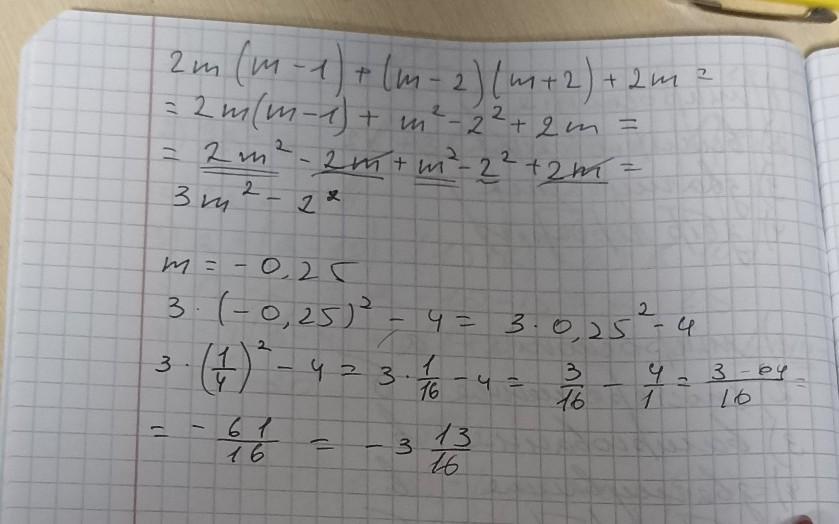 2m(m-1)+(m-2)(m+2)+2m=
=2m(m-1)+m²-2²+2m=
=2m²-2m+m²-2²+2m=
3m²-2²
m=-0,25
3·(-0,25)²-4=3·0,25²-4
3·(1/4)²-4=3·1/16-4=3/16-4/1=3-64/16=
=-61/16=-3 13/16